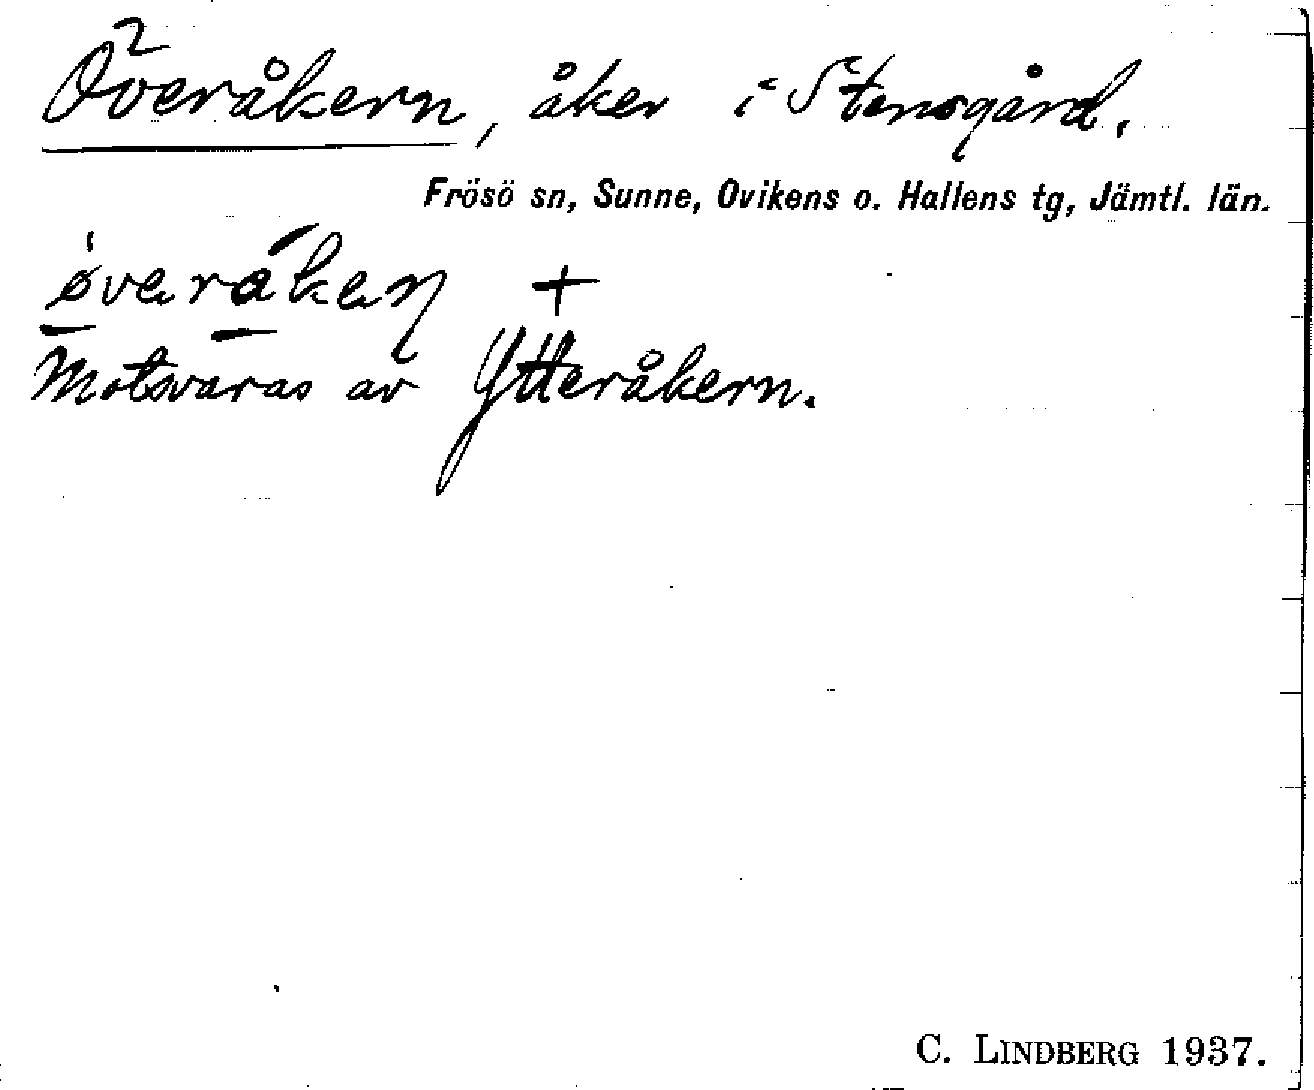 Överåkern, åker i Stensgård.
Frösö sn, Sunne, Ovikens o. Hallens tg, Jämtl. län.
øveråkeŋ +
Motsvaras av Ytteråkern.
C. LINDBERG 1937.